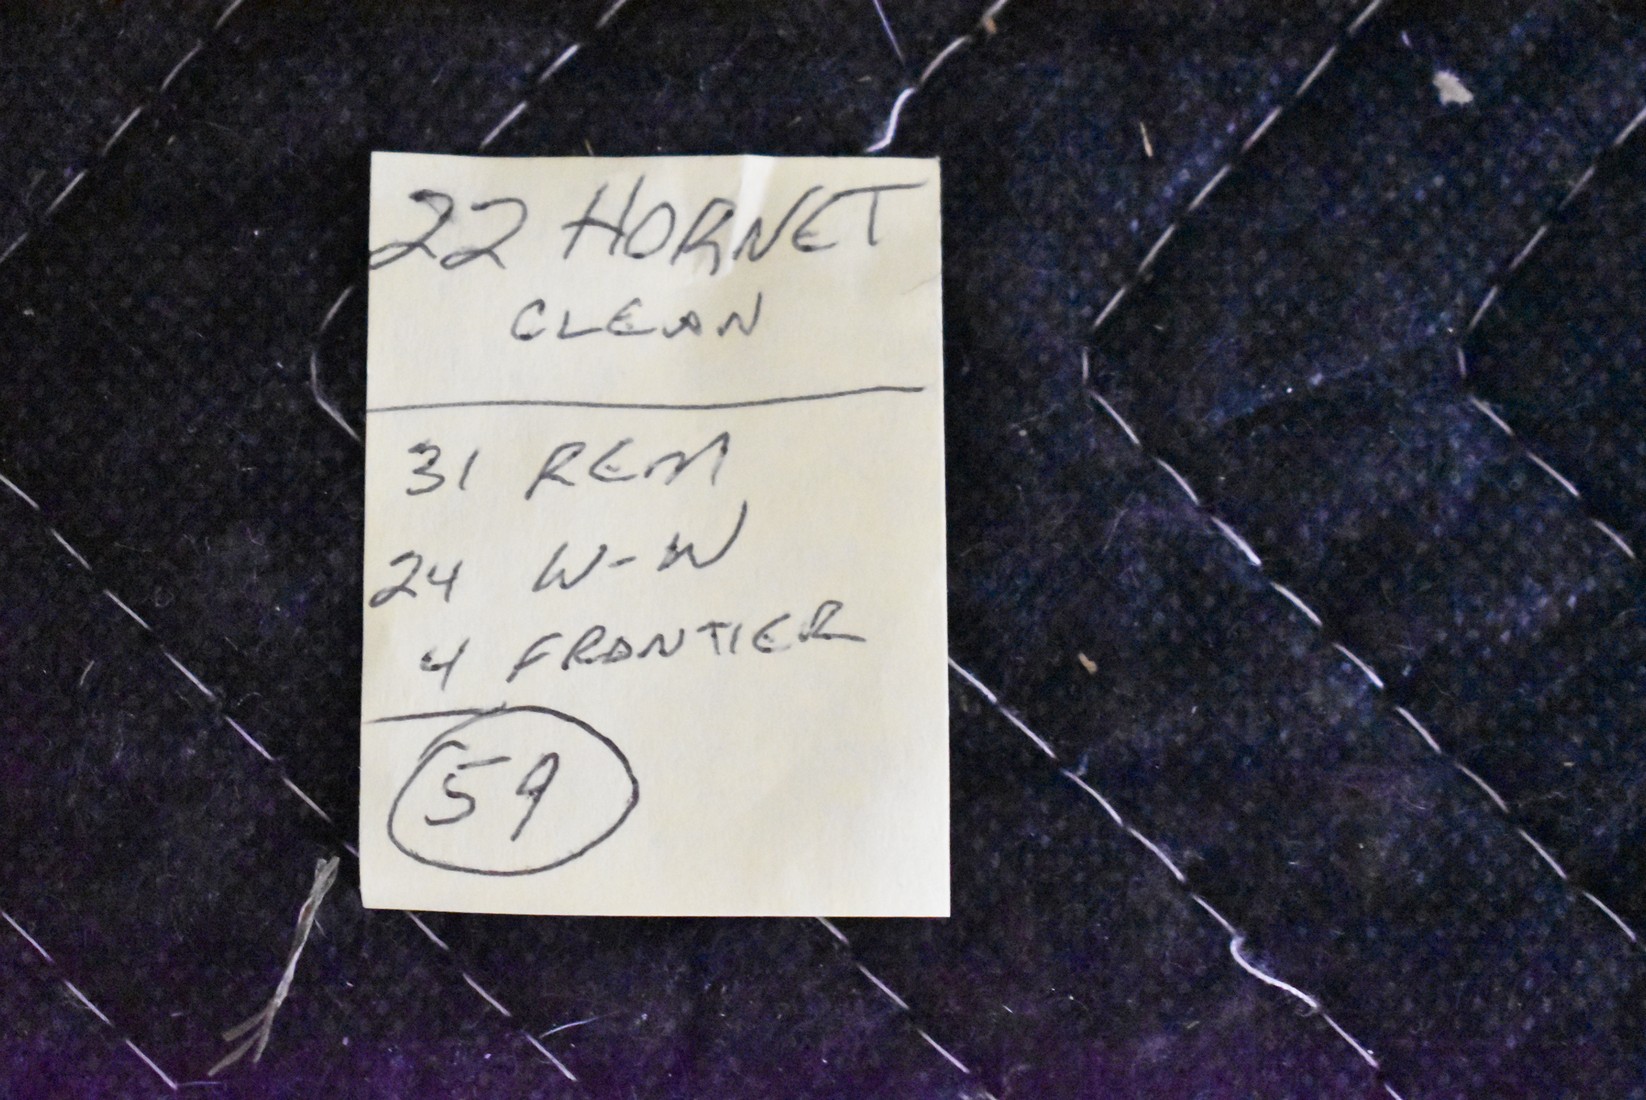 22 HORNET
CLEAN
31 REM
24 W-W
4 FRONTIER
59